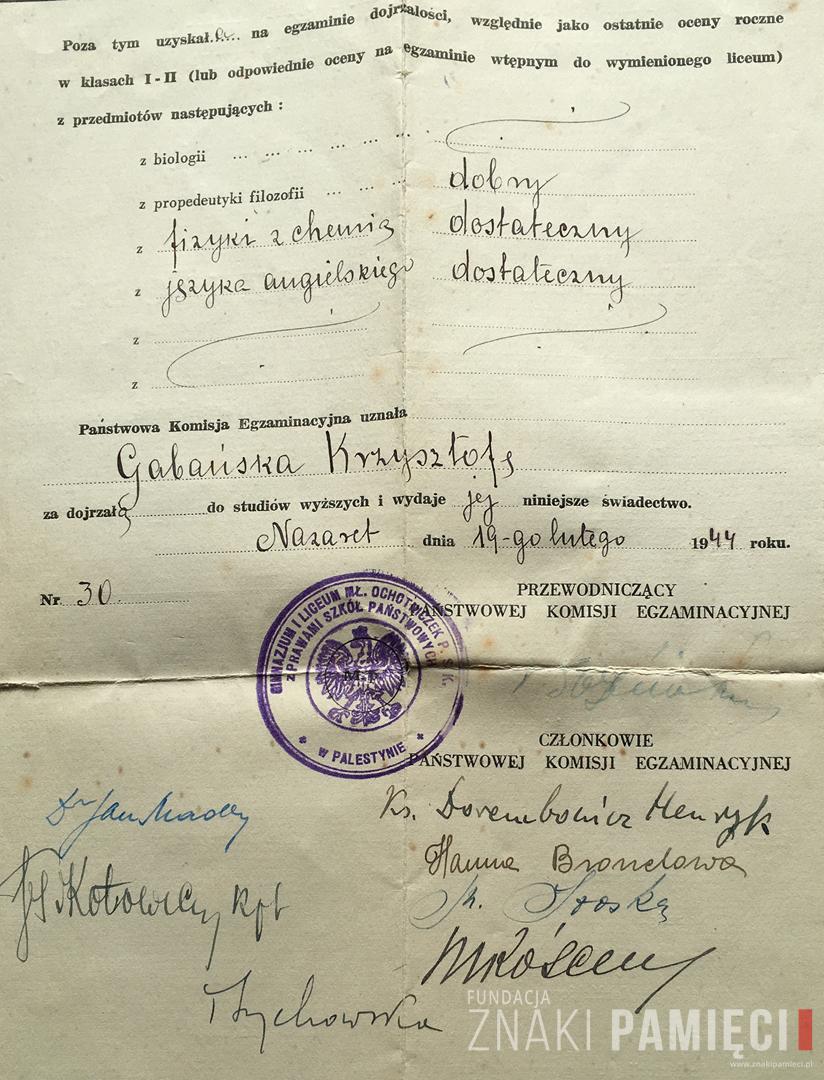 Poza tym uzyskał.a... na egzaminie dojrzałości, względnie jako ostatnie oceny roczne
w klasach I - II (lub odpowiednie oceny na egzaminie wtępnym do wymienionego liceum)
z przedmiotów następujących :
z biologii
z propedeutyki filozofii dobry
z fizyki z chemią dostateczny
z języka angielskiego dostateczny
z
z
Państwowa Komisja Egzaminacyjna uznała
Gabańska Krzysztofę
za dojrzałą do studiów wyższych i wydaje jej niniejsze świadectwo.
Nazaret dnia 19-go lutego 1944 roku.
Nr 30.
PRZEWODNICZĄCY
PAŃSTWOWEJ KOMISJI EGZAMINACYJNEJ
GIMNAZJUM I LICEUM MŁ. OCHOTNICZEK P. S. K.
Z PRAWAMI SZKÓŁ PAŃSTWOWYCH
w PALESTYNIE
CZŁONKOWIE
PAŃSTWOWEJ KOMISJI EGZAMINACYJNEJ
Ks. Henryk
Dr Jan
Hanna Brondowa
Kpt
FUNDACJA
ZNAKI PAMIĘCI
www.znakipamieci.pl